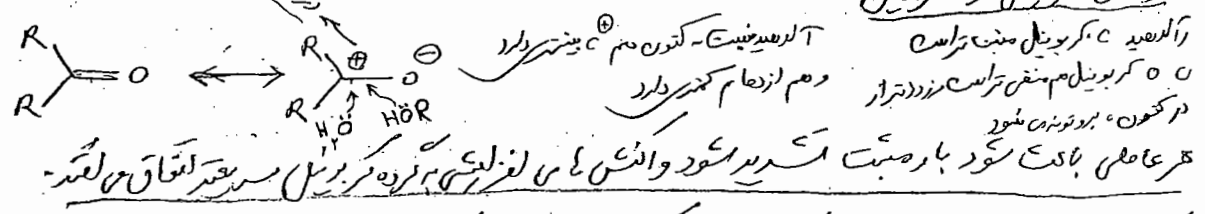 آلدهید نسبت به کتون هم C⊕ بیشتری دارد
و هم ازدحام کمتری دارد
در آلدهید C کربونیل مثبت تر است
و O کربونیل هم منفی تر است و زودتر از
در کتون، پروتونه می شود
R R O
R R ⊕ O ⊖
H₂Ö HÖR
هر عاملی باعث شود بار مثبت تشدید شود واکنش های افزایشی به گروه کربونیل سریعتر اتفاق می افتد.